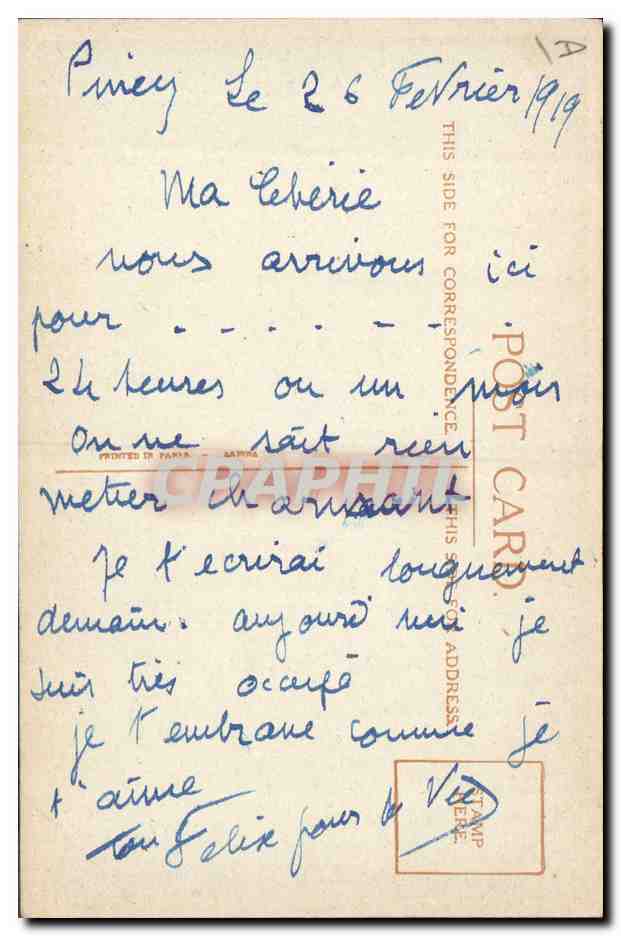 Piney Le 26 Fevrier 1919
A
Ma Cherie
nous arrivons ici
pour . - . . - - .
24 heures ou un mois
On ne sait rien
metier charmant
Je t'ecrirai longuement
demain. aujourd'hui je
suis très occupé
je t'embrasse comme je
t'aime
ton Felix pour la Vie
POST CARD
THIS SIDE FOR CORRESPONDENCE.
THIS SIDE FOR ADDRESS.
PRINTED IN PARIS
STAMP
HERE.
CPAPHIL